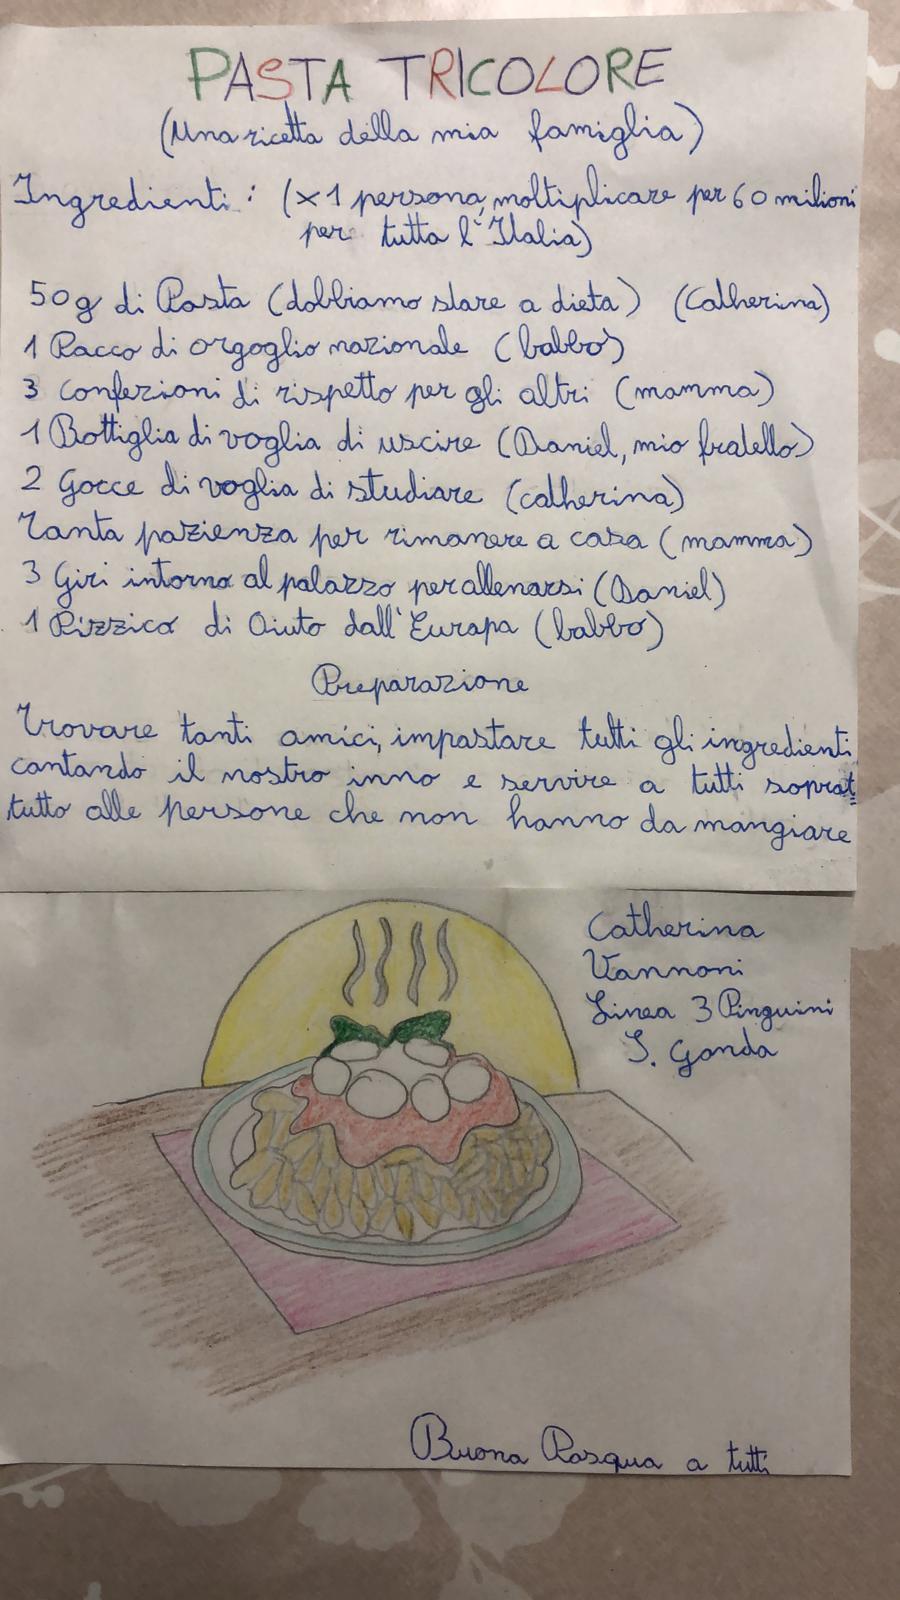 PASTA TRICOLORE
(Una ricetta della mia famiglia)
Ingredienti: (x1 persona, moltiplicare per 60 milioni
per tutta l'Italia)
50g di Pasta (dobbiamo stare a dieta) (Catherina)
1 Pacco di orgoglio nazionale (babbo)
3 confezioni di rispetto per gli altri (mamma)
1 Bottiglia di voglia di uscire (Daniel, mio fratello)
2 Gocce di voglia di studiare (catherina)
Tanta pazienza per rimanere a casa (mamma)
3 Giri intorno al palazzo per allenarsi (Daniel)
1 Pizzico di Aiuto dall'Europa (babbo)
Preparazione
Trovare tanti amici, impastare tutti gli ingredienti
cantando il nostro inno e servire a tutti soprat=
tutto alle persone che non hanno da mangiare
Catherina
Vannoni
Linea 3 Pinguini
S. Gonda
Buona Pasqua a tutti